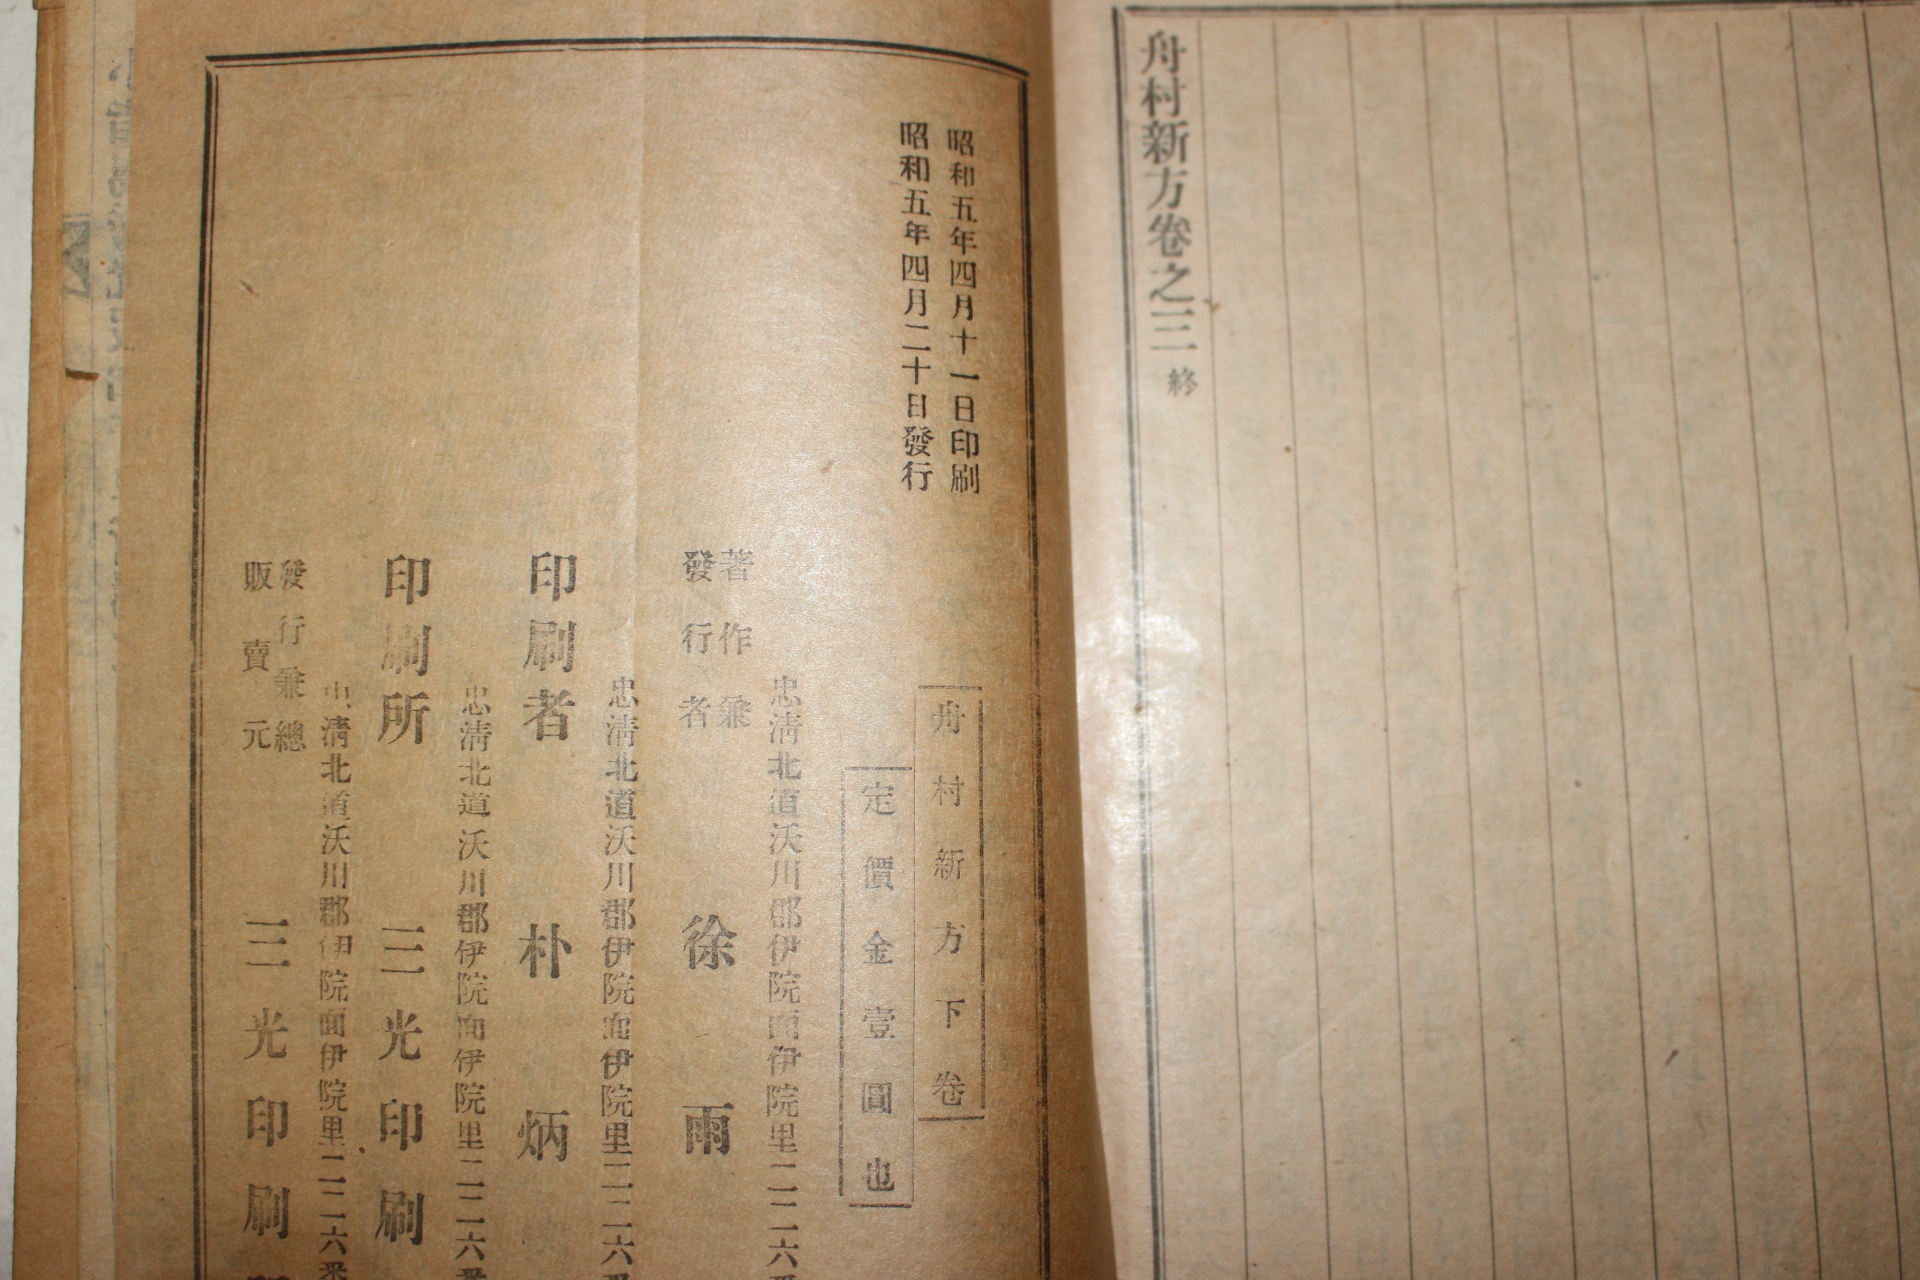 舟村新方卷之三 終
昭和五年四月十一日印刷
昭和五年四月二十日發行
舟村新方下卷
定價金壹圓也
忠淸北道沃川郡伊院面伊院里二二六
著作兼
發行者 徐雨
忠淸北道沃川郡伊院面伊院里二二六
印刷者 朴炳
忠淸北道沃川郡伊院面伊院里二二六
印刷所 三光印刷
忠淸北道沃川郡伊院面伊院里二二六
發行兼總
販賣元 三光印刷